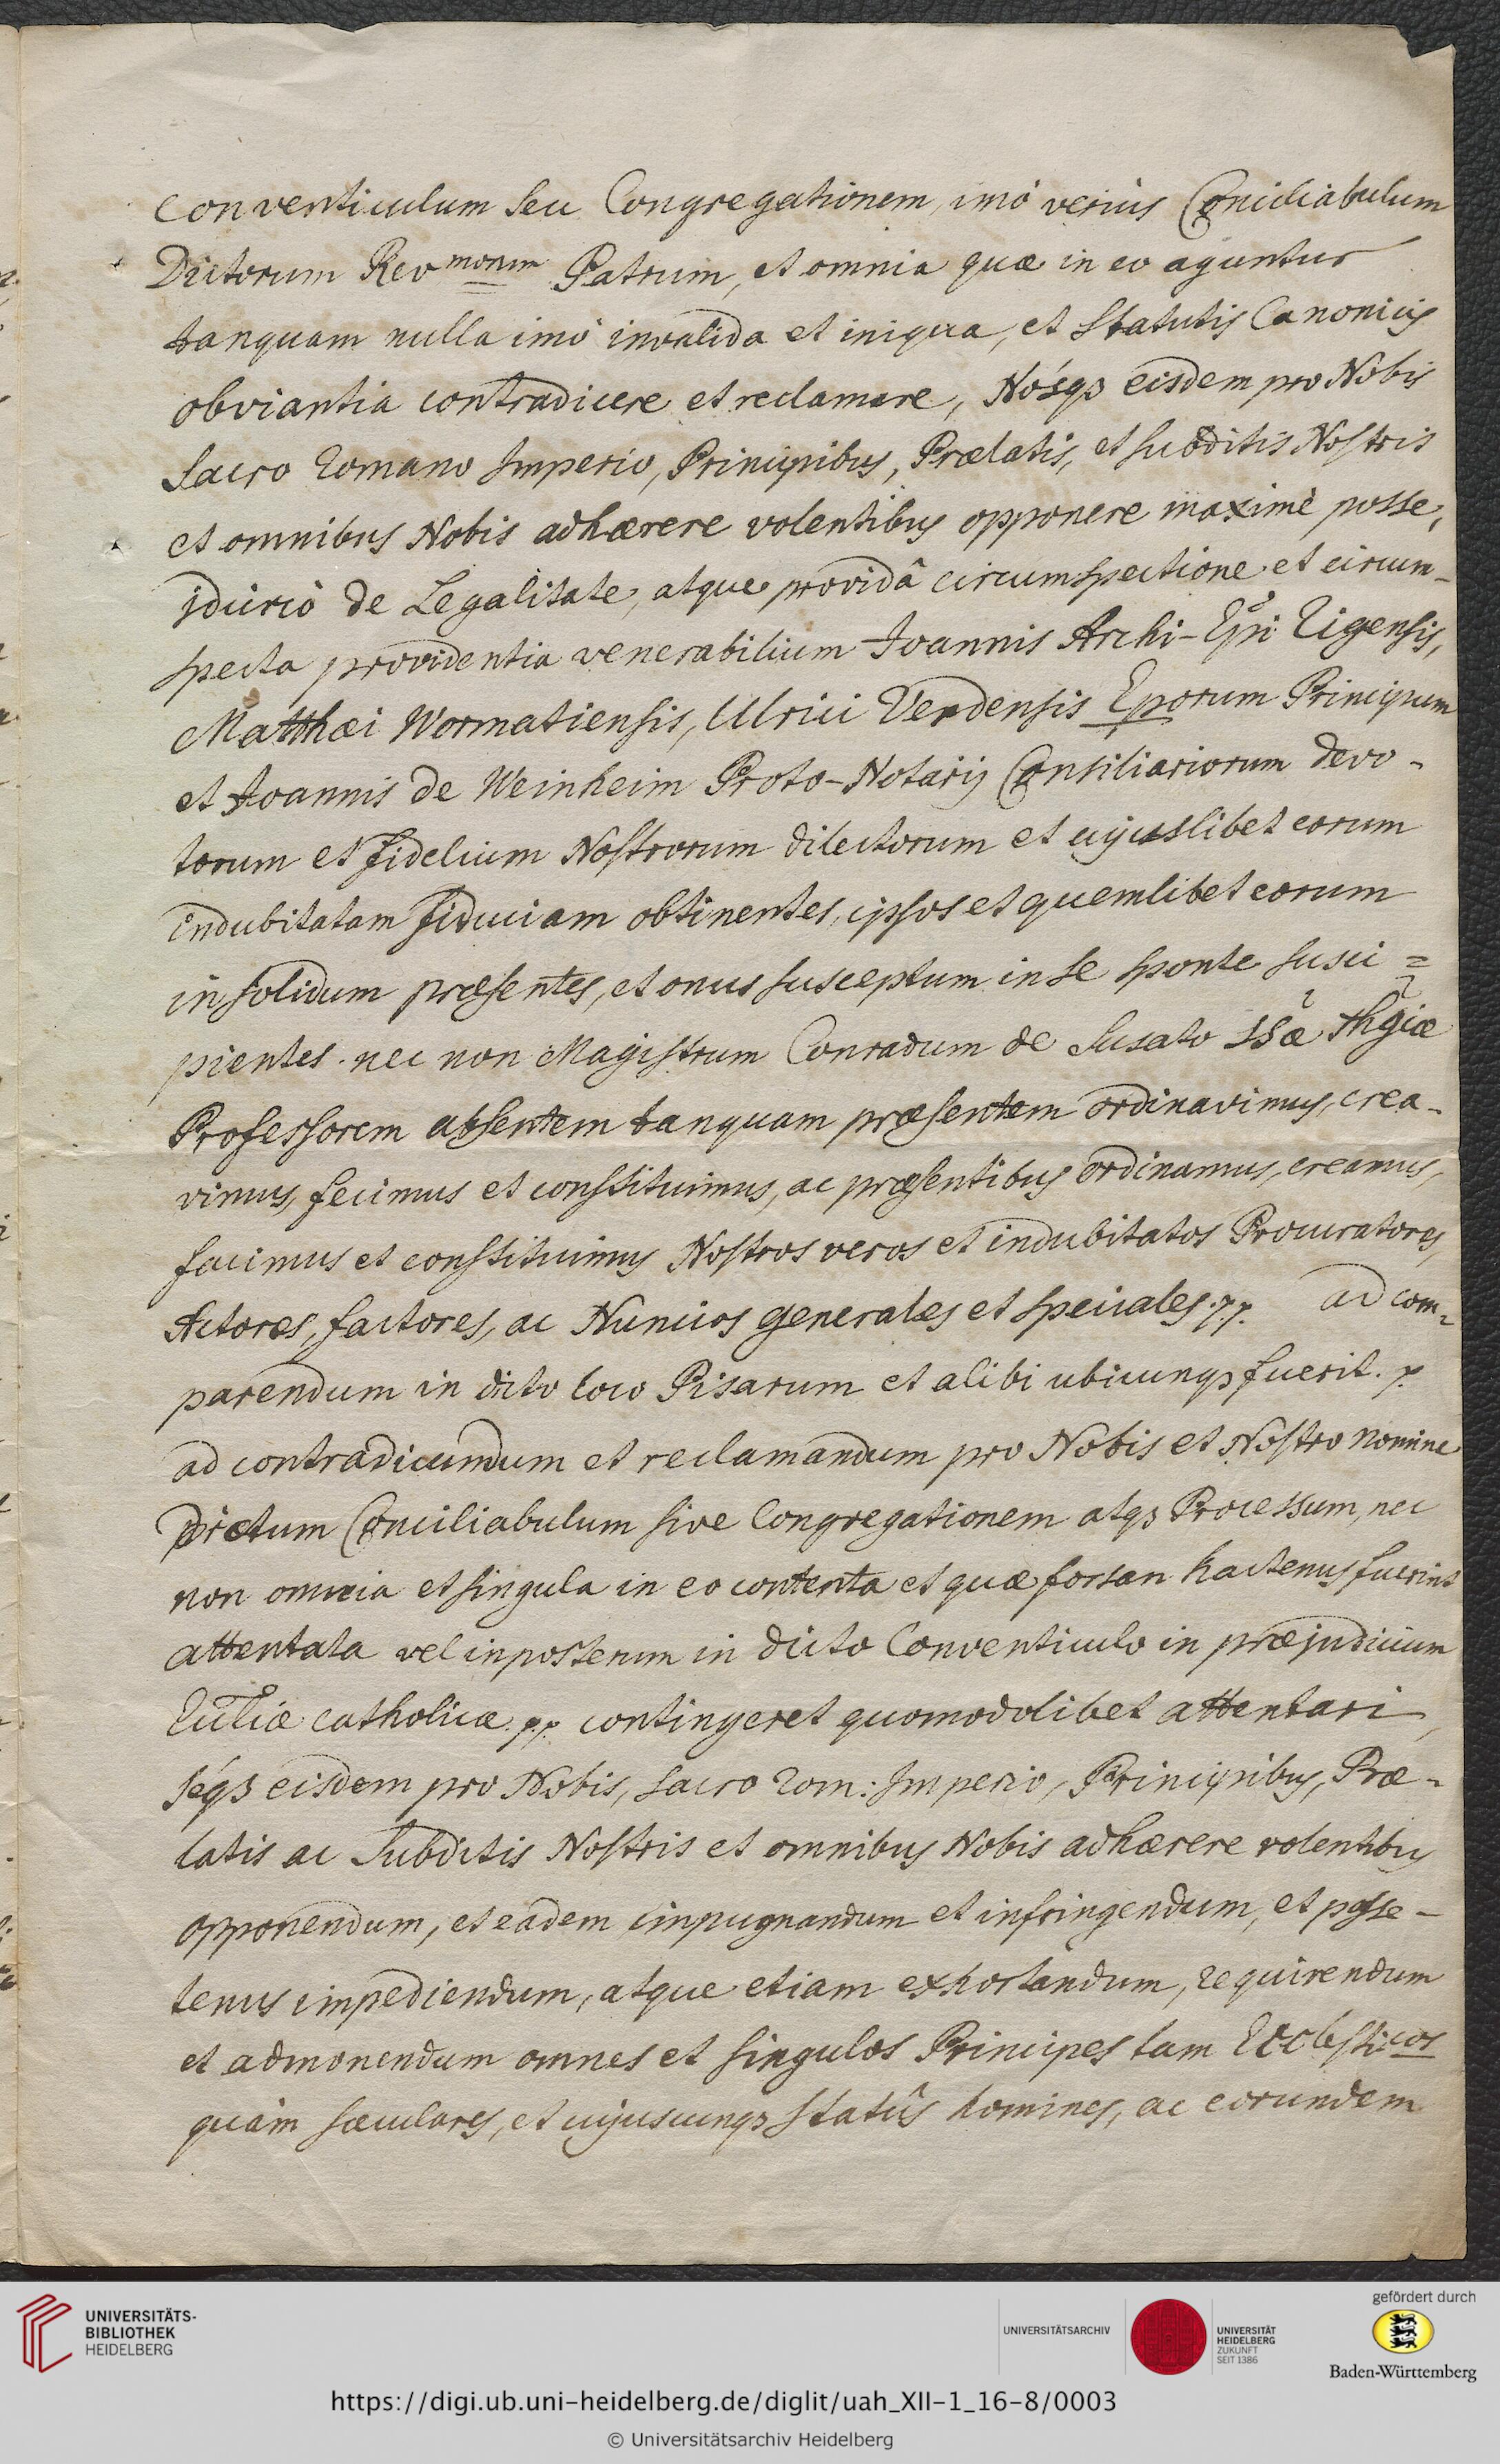 conventiculum seu Congregationem, imò veriùs Conciliabulum
Dictorum Revmorum Patrum, et omnia quæ in eo aguntur
tanquam nulla imò invalida et iniqua, et Statutis Canonicis
obviantia contradicere et reclamare, Nósq3 eisdem pro Nobis
Sacro Romano Imperio, Principibus, Prælatis, et subditis Nostris
et omnibus Nobis adhærere volentibus opponere maximè posse,
de Legalitate, atque providâ circumspectione et circum-
specta providentia venerabilium Joannis Archi-Epi Rigensis,
Matthæi Wormatiensis, Ulrici Verdensis Eporum Principum
et Joannis de Weinheim Proto-Notarij Consiliariorum devo-
torum et fidelium Nostrorum dilectorum et cujuslibet eorum
indubitatam fiduciam obtinentes, ipsos et quemlibet eorum
in solidum præsentes, et onus susceptum in se sponte susci=
pientes. nec non Magistrum Conradum de Susato SSæ Thgiæ
Professorem absentem tanquam præsentem ordinavimus, crea-
vimus, fecimus et constituimus, ac præsentibus ordinamus, creamus,
facimus et constituimus Nostros veros et indubitatos Procuratores,
Actores, factores, ac Nuncios generales et speciales. pp. ad com-
parendum in dicto loco Pisarum et alibi ubicunq3 fuerit. p.
ad contradicendum et reclamandum pro Nobis et Nostro nomine
Dictum Conciliabulum sive Congregationem atq3 Processum, nec
non omnia et singula in eo contenta et quæ forsan hactenus fuerint
attentata vel inposterum in dicto Conventiculo in præjudicium
Ecliæ catholicæ pp. contingeret quomodolibet attentari,
séq3 eisdem pro Nobis, sacro Rom: Imperio, Principibus, Præ-
latis ac Subditis Nostris et omnibus Nobis adhærere volentibus
opponendum, et eadem impugnandum et infringendum, et posse-
tenus impediendum, atque etiam exhortandum, requirendum
et admonendum omnes et singulos Principes tam Ecclesticos
quàm sæculares, et cujuscunq3 Statûs homines, ac eorundem
UNIVERSITÄTS-
BIBLIOTHEK
HEIDELBERG
UNIVERSITÄTSARCHIV
UNIVERSITÄT
HEIDELBERG
ZUKUNFT
SEIT 1386
gefördert durch
Baden-Württemberg
https://digi.ub.uni-heidelberg.de/diglit/uah_XII-1_16-8/0003
© Universitätsarchiv Heidelberg